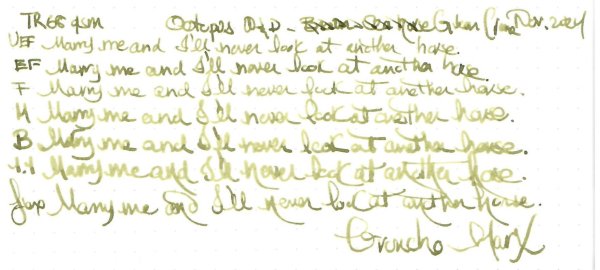 TR&B 68 gsm Octopus D&D - Green Nov. 2024
UEF Marry me and I'll never look at another horse.
EF Marry me and I'll never look at another horse.
F Marry me and I'll never look at another horse.
M Marry me and I'll never look at another horse.
B Marry me and I'll never look at another horse.
1.1 Marry me and I'll never look at another horse.
Marry me and I'll never look at another horse.
Groucho Marx